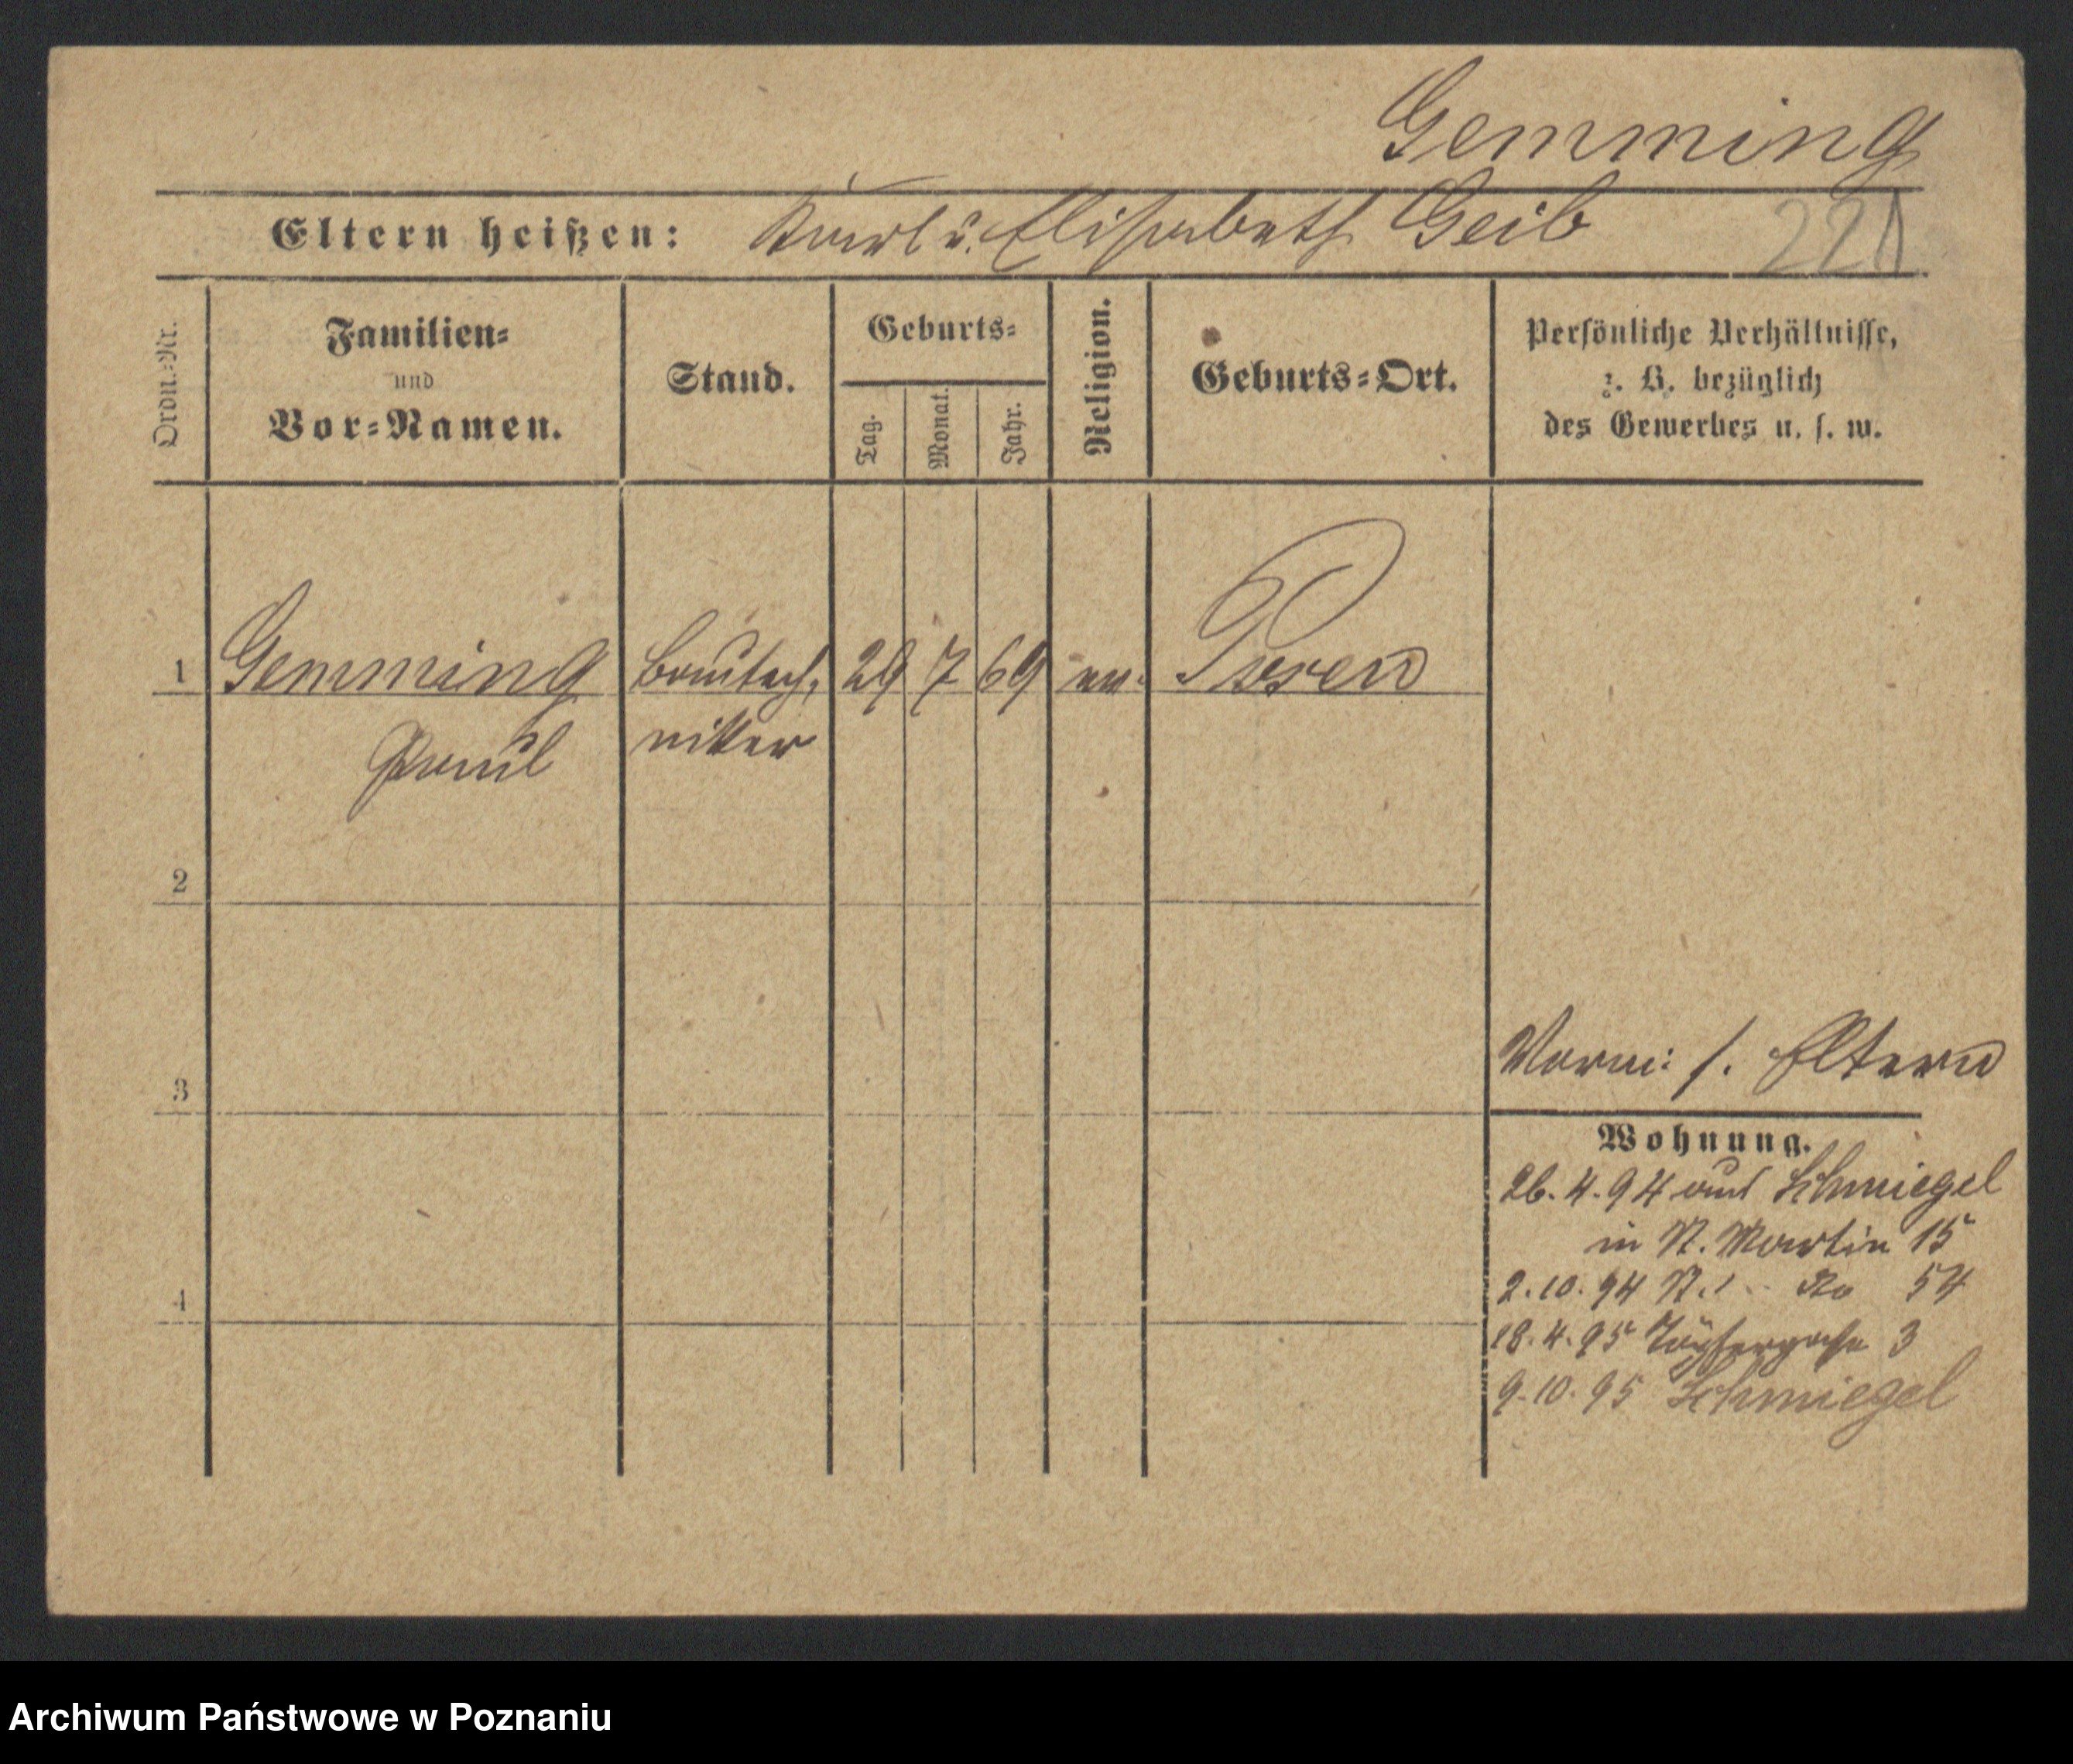 Gemming
Eltern heißen: Karl u. Elisabeth Geib
221
Ordn.-Nr.
Familien-
und
Vor-Namen.
Stand.
Geburts-
Tag.
Monat.
Jahr.
Religion.
Geburts-Ort.
Persönliche Verhältnisse,
z. B. bezüglich
des Gewerbes u. s. w.
1 Gemming Bautech- 29 7 69 ev. Posen
Paul niker
2
3
4
Vorm: s. Eltern
Wohnung.
26.4.94 aus Schmiegel
in St. Martin 15
2.10.94 St. do 54
18.4.95 Töpfergasse 3
9.10.95 Schmiegel
Archiwum Państwowe w Poznaniu